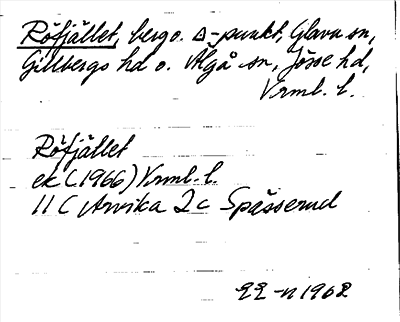 Röfjället, berg o. Δ-punkt, Glava sn,
Gillbergs hd o. Älgå sn, Jösse hd,
Vrml. l.
Röfjället
ek (1966) Vrml. l.
11 C Arvika 2 c Spässerud
1962